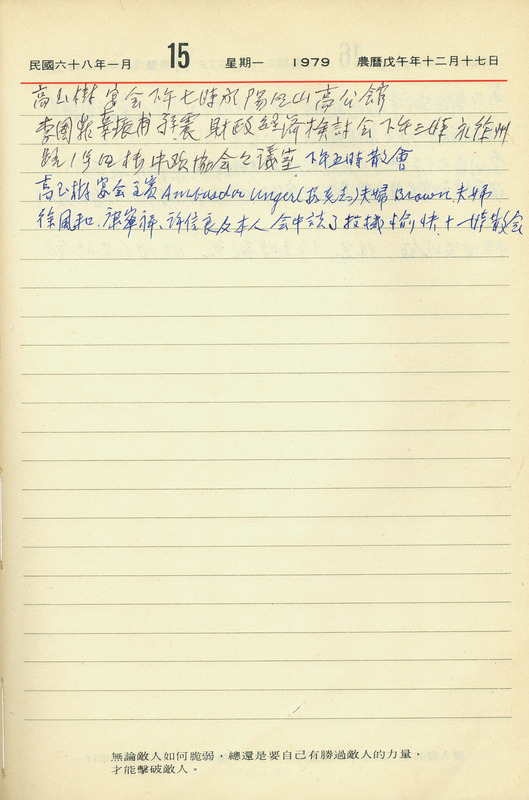 民國六十八年一月 15 星期一 1979 農曆戊午年十二月十七日
高玉樹宴会下午七時於陽明山高公館
李國鼎辜振甫 財政經濟檢討会下午三時 於徐州
路1号四楼 協会之議室 下午五時散會
高玉樹宴会主賓Ambassador Unger(安克志)夫婦Brown夫婦
徐國和、康寧祥、許信良及本人 会中談 愉快 十一時散会
無論敵人如何脆弱,總還是要自己有勝過敵人的力量,
才能擊破敵人。